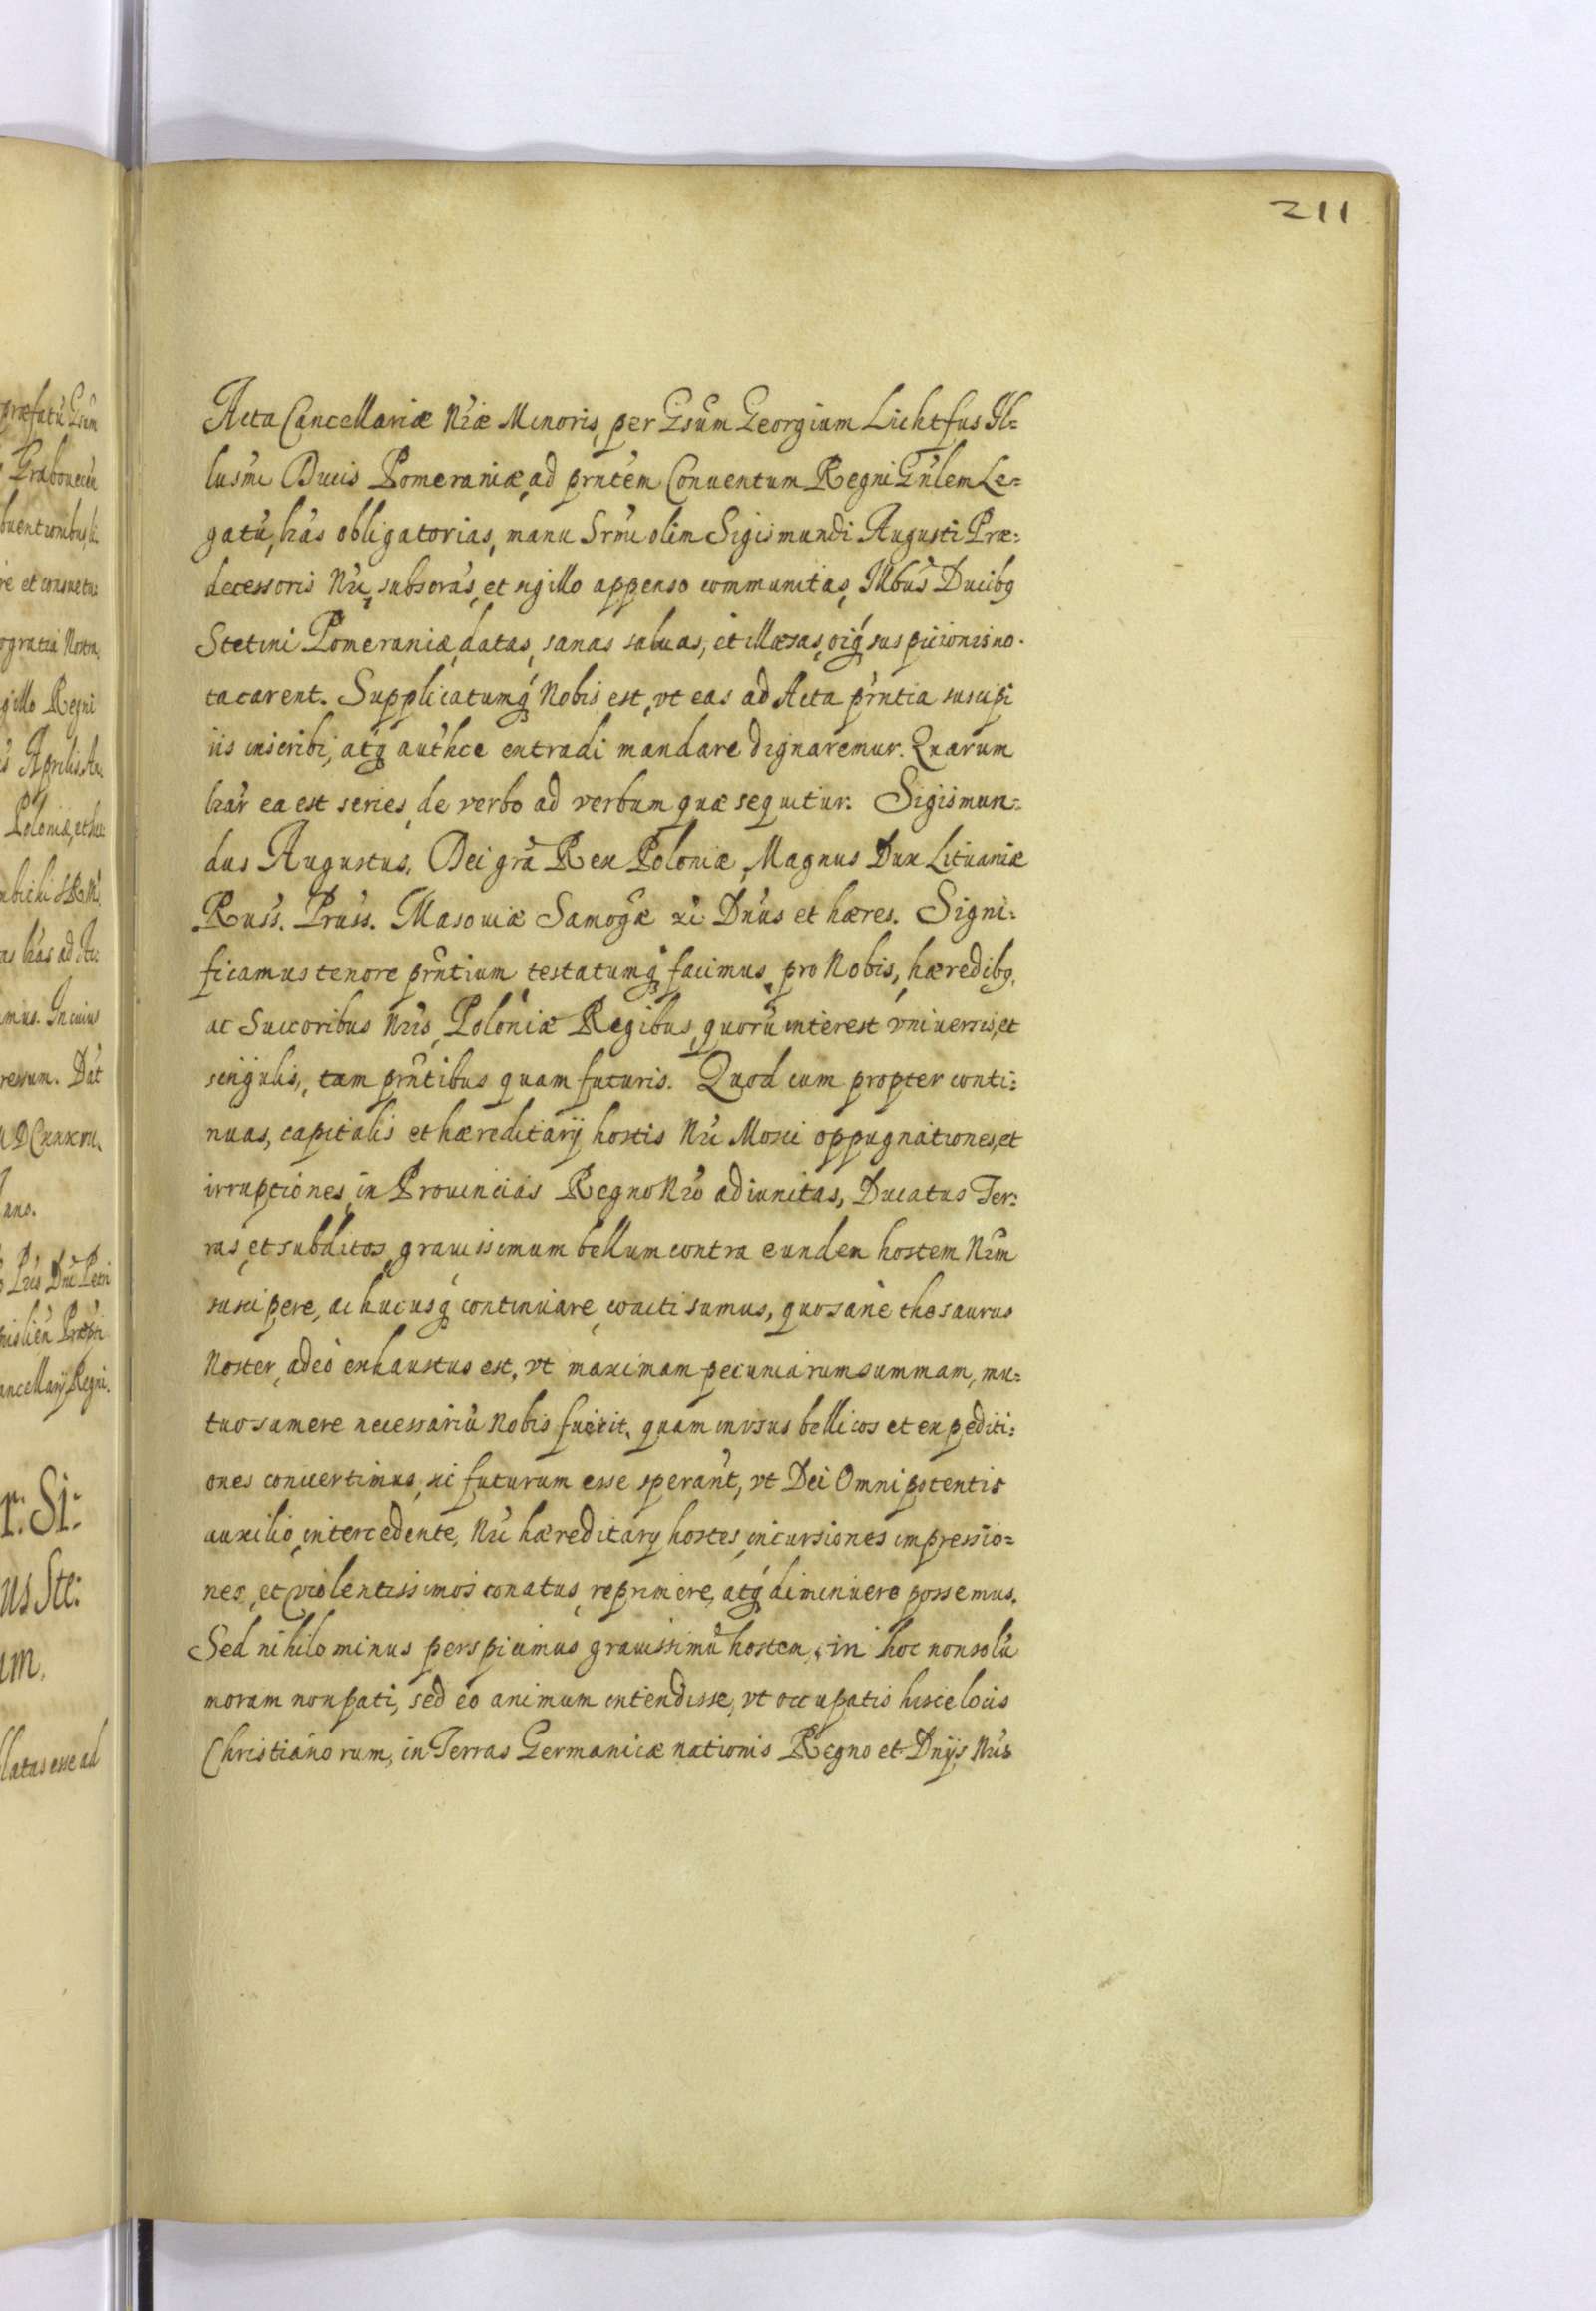 211
Acta Cancellariæ Nræ Minoris, per Gsum Georgium Lichtfus Il=
lusmi Ducis Pomeraniæ, ad prntem Conuentum Regni Gnlem Le=
gatu, lras obligatorias, manu Srmi olim Sigismundi Augusti Præ:
decessoris Nri, subscras, et sigillo appenso communitas, Illbus Ducibq
Stetini Pomeraniæ, datas, sanas saluas, et illæsas, oiq suspicionis no.
ta carent. Supplicatumq Nobis est, vt eas ad Acta prntia suscipi
iis inscribi, atq authce extradi mandare dignaremur. Quarum
lrar ea est series, de verbo ad verbum quæ sequitur. Sigismun=
dus Augustus, Dei gra Rex Poloniæ, Magnus Dux Lituaniæ
Russ. Pruss. Masouiæ Samogæ zc Dnus et hæres. Signi:
ficamus tenore prntium testatumq facimus, pro Nobis, hæredibq,
ac Succoribus Nris, Poloniæ Regibus, quoru interest vniuersis, et
singulis, tam prntibus quam futuris. Quod cum propter conti:
nuas, capitalis et hæreditarij hostis Nri Mosci oppugnationes, et
irruptiones in Prouincias Regno Nro adiunctas, Ducatus Ter:
ras, et subditos, grauissimum bellum contra eunden hostem Nrm
suscipere, ac hucusq continuare, coacti sumus, quo sane thesaurus
Noster, adeò exhaustus est, vt maximam pecuniarum summam, mu:
tuo sumere necessariu Nobis fuerit, quam in vsus bellicos et expediti:
ones conuertimus, sic futurum esse sperant, vt Dei Omnipotentis
auxilio, intercedente, Nri hæreditary hostes, incursiones impressio=
nes, et violentissimos conatus, reprimere, atq diminuere possemus.
Sed nihilo minus perspicimus grauissimu hostem, in hoc non solu
moram non pati, sed eo animum intendisse, vt occupatis hisce locis
Christianorum, in Terras Germanicæ nationis Regno et Dnijs Nris